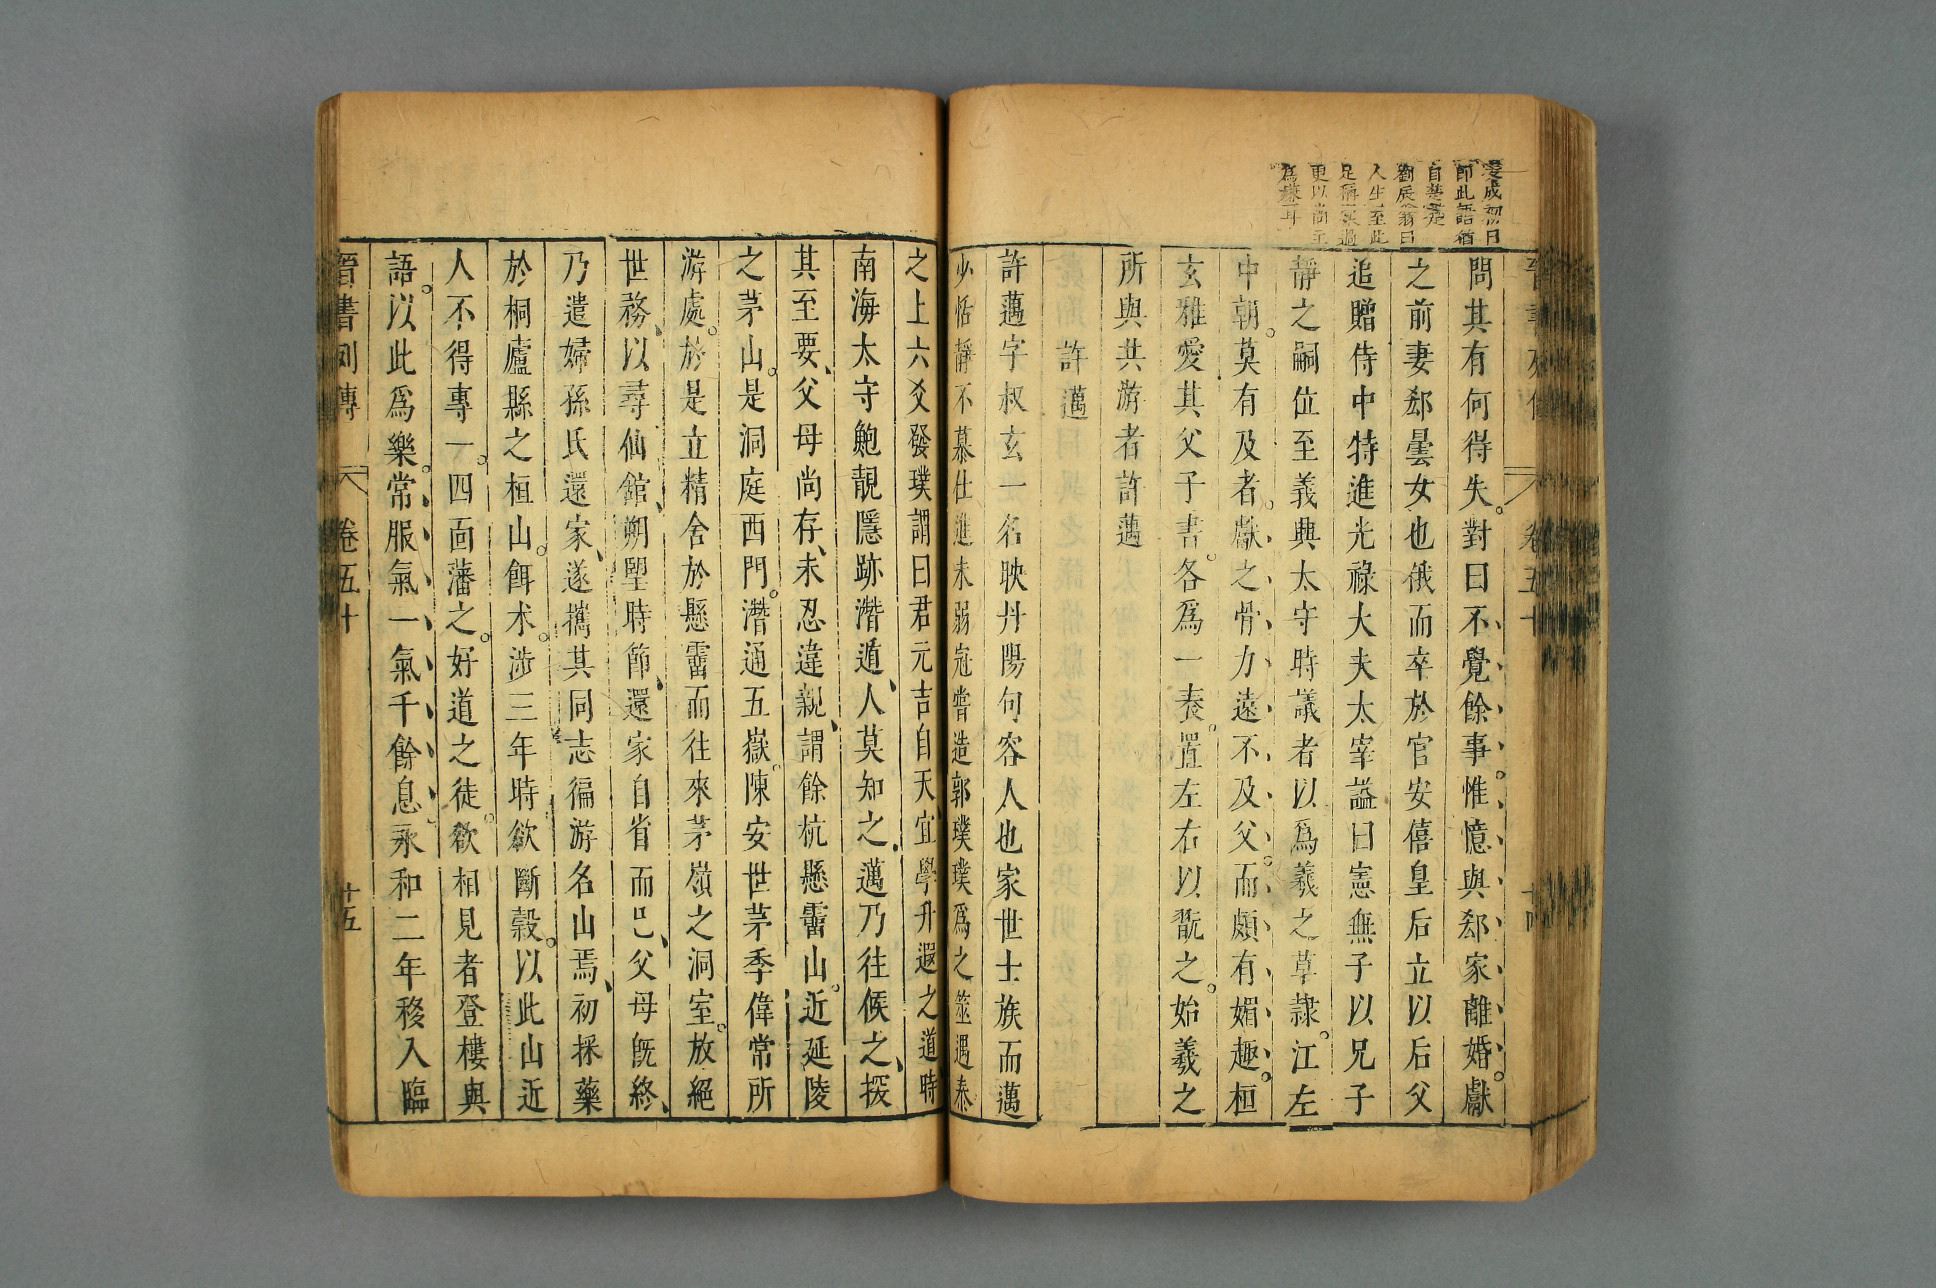 凌成初曰
節此語猶
自楚楚
劉辰翁曰
人生至此
足稱
更以尚主
爲慊耳
問其有何得失。對曰不覺餘事。惟憶與郄家離婚。獻
之前妻郄曇女也俄而卒於官安僖皇后立以后父
追贈侍中特進光祿大夫太宰謚曰憲無子以兄子
靜之嗣位至義興太守時議者以爲羲之草隸。江左
中朝。莫有及者。獻之骨力遠不及父。而頗有媚趣。桓
玄雅愛其父子書。各爲一袠。置左右以翫之。始羲之
所與共游者許邁
許邁
許邁字叔玄一名映丹陽句容人也家世士族而邁
少恬靜不慕仕進未弱冠嘗造郭璞璞爲之筮遇泰
之上六爻發璞謂曰君元吉自天宜學升遐之道時
南海太守鮑靚隱跡潛遁人莫知之邁乃往候之探
其至要父母尚存未忍違親謂餘杭懸霤山。近延陵
之茅山。是洞庭西門。潛通五嶽。陳安世茅季偉常所
游處。於是立精舍於懸霤而往來茅嶺之洞室。放絕
世務以尋仙館朔朢時節還家自省而已父母旣終
乃遣婦孫氏還家遂攜其同志徧游名山焉初採藥
於桐廬縣之桓山。餌朮。涉三年時欲斷穀。以此山近
人不得專一。四面藩之。好道之徒。欲相見者登樓與
語。以此爲樂。常服氣一氣千餘息永和二年移入臨
晉書列傳 卷五十 十五